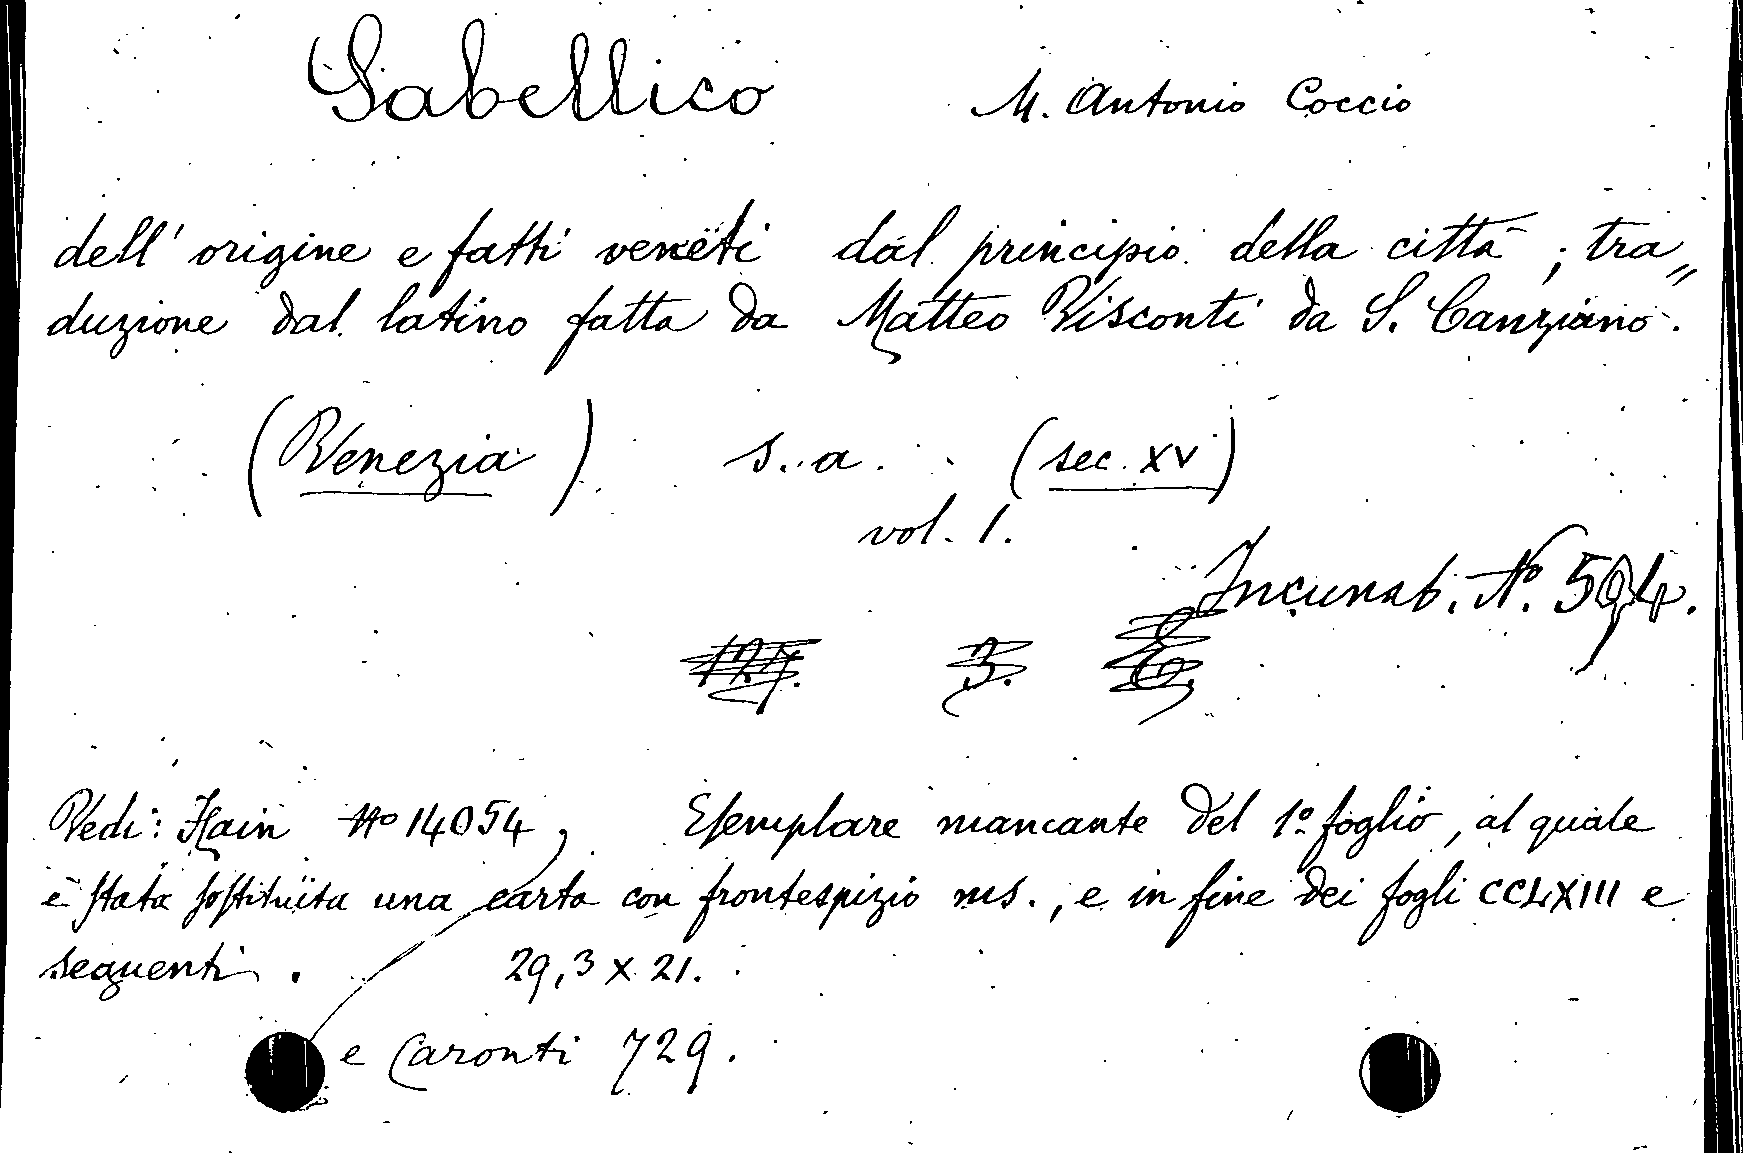 Sabellico M. Antonio Coccio
dell' origine e fatti veneti dal principio della città ; tra„
duzione dal latino fatta da Matteo Visconti da S. Canziano.
(Venezia) s. a. (sec. XV)
vol. 1.
Incunab. Nº. 594.
127. 3. 
Vedi: Hain Nº 14054, Esemplare mancante del 1º foglio, al quale
è stata sostituita una carta con frontespizio ms., e in fine dei fogli CCLXIII e
seguenti. 29,3 x 21.
e Caronti 729.